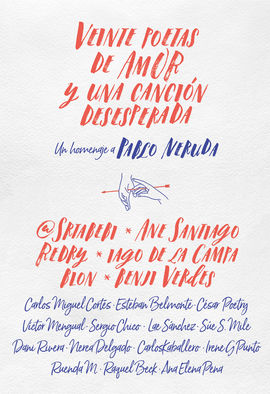 VEINTE POETAS
DE AMOR
Y UNA CANCIÓN
DESESPERADA
Un homenaje a PABLO NERUDA
@SRTABEBI * ANE SANTIAGO
REDRY * IAGO DE LA CAMPA
BION * BENJI VERDES
Carlos Miguel Cortés · Esteban Belmonte · César Poetry
Víctor Mengual · Sergio Chuco · Lae Sánchez · Süe S. Mile
Dani Rivera · Nerea Delgado · CarlosKaballero · Irene G Punto
Ruenda M · Raquel Beck · Ana Elena Pena